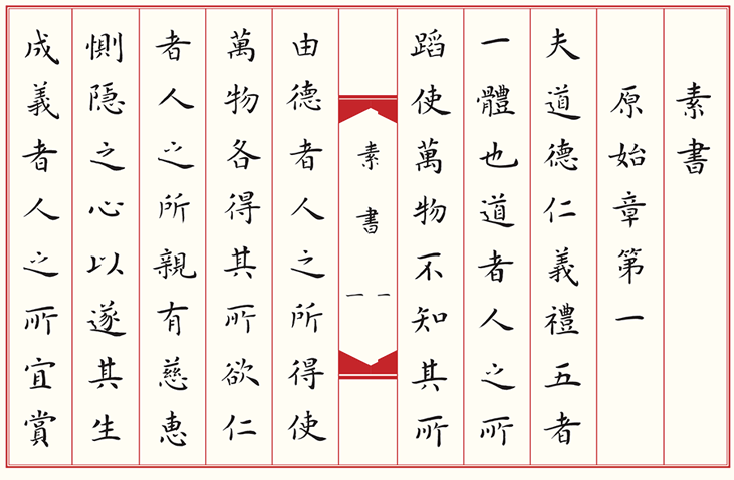 素書
原始章第一
夫道德仁義禮五者
一體也道者人之所
蹈使萬物不知其所
素書
一一
由德者人之所得使
萬物各得其所欲仁
者人之所親有慈惠
惻隱之心以遂其生
成義者人之所宜賞